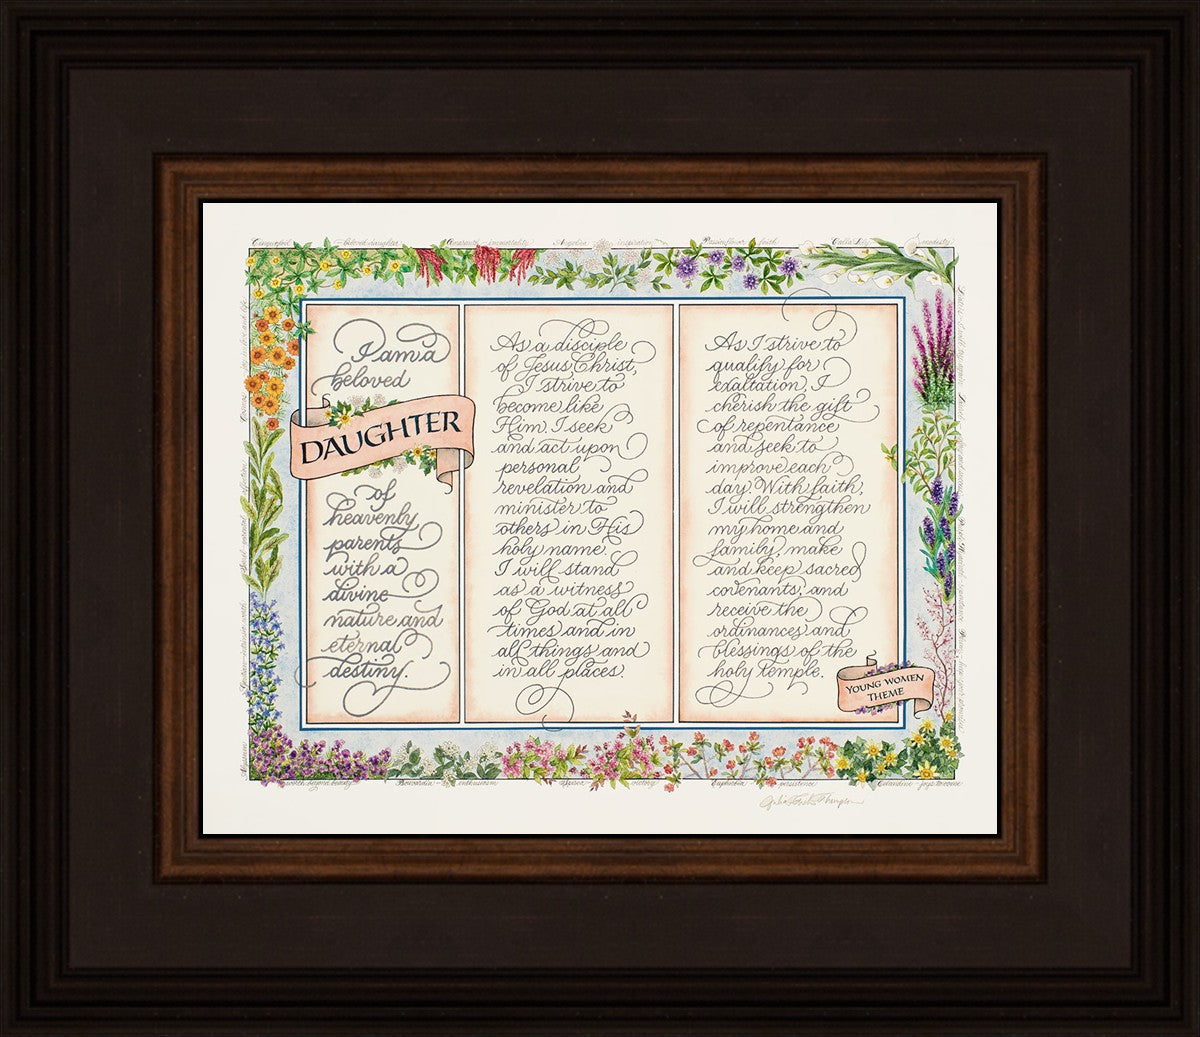 Cinquefoil - beloved daughter Amaranth - immortality Angelica - inspiration Passionflower - faith Calla Lily - modesty
I am a
beloved
DAUGHTER
of
heavenly
parents
with a
divine
nature and
eternal
destiny.
As a disciple
of Jesus Christ,
I strive to
become like
Him. I seek
and act upon
personal
revelation and
minister to
others in His
holy name.
I will stand
as a witness
of God at all
times and in
all things and
in all places.
As I strive to
qualify for
exaltation, I
cherish the gift
of repentance
and seek to
improve each
day. With faith,
I will strengthen
my home and
family, make
and keep sacred
covenants, and
receive the
ordinances and
blessings of the
holy temple.
YOUNG WOMEN
THEME
Bouvardia - enthusiasm Euphorbia - persistence Celandine - joys to come